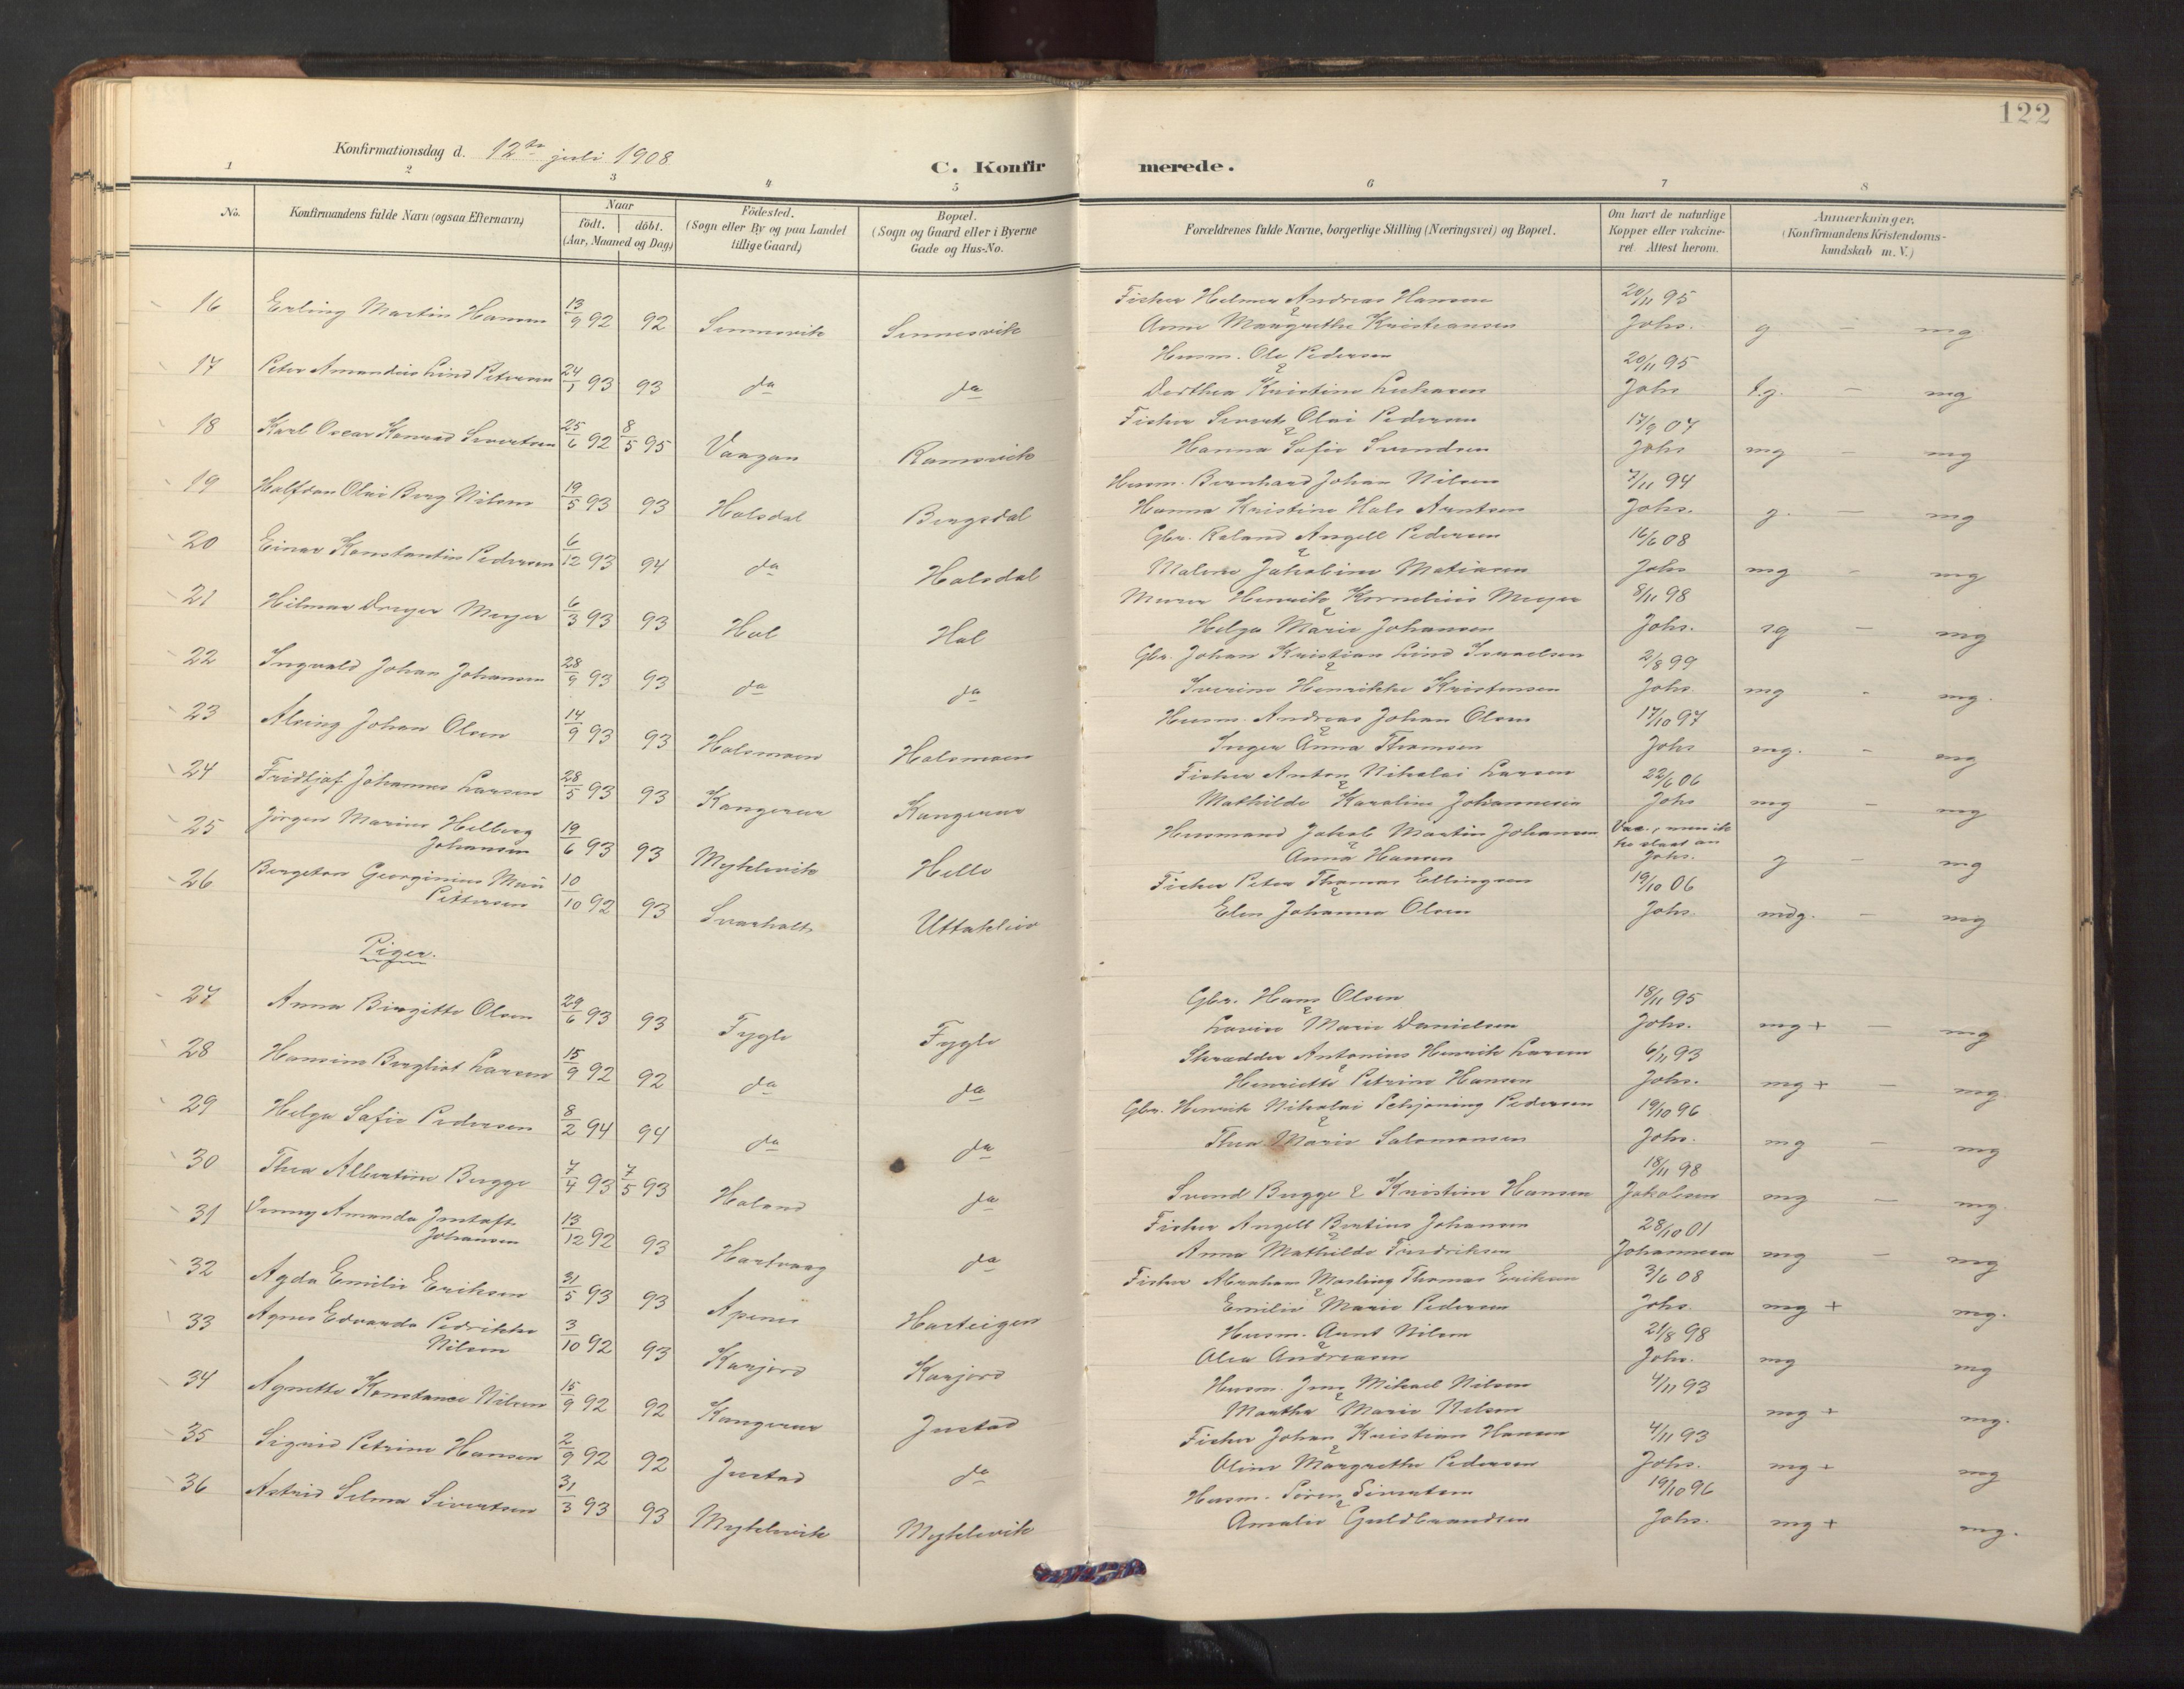 122
Konfirmationsdag d. 12te juli 1908
C. Konfirmerede.
1 2 3 4 5 6 7 8
No. Konfirmandens fulde Navn (ogsaa Efternavn) Naar födt. döbt. (Aar, Maaned og Dag) Födested. (Sogn eller By og paa Landet tillige Gaard) Bopæl. (Sogn og Gaard eller i Byerne Gade og Hus-No. Forældrenes fulde Navne, borgerlige Stilling (Næringsvei) og Bopæl. Om havt de naturlige Kopper eller vakcineret Attest herom. Anmærkninger. (Konfirmandens Kristendomskundskab m. V.)
16 Erling Martin Hansen 13/9 92 92 Sennesvik Sennesvik Fisker Helmer Andreas Hansen 20/11 95
& Anne Margrethe Kristiansen Johs. g - mg
17 Peter Amandus Lind Petersen 24/1 93 93 da da Husm. Ole Pedersen 20/11 95
& Dorthea Kristine Lukasen Johs t.g. - mg
18 Karl Oscar Konrad Sivertsen 25/6 92 8/5 95 Vaagan Ramsvik Fisker Sivert Olai Pedersen 17/9 07
& Hanna Sofie Svendsen Johs mg - mg
19 Halfdan Olai Berg Nilsen 19/5 93 93 Holsdal Bergsdal Husm. Bernhard Johan Nilsen 7/11 94
Hanna Kristine Hals Arntsen Johs. g. - mg
20 Einar Konstantin Pedersen 6/12 93 94 da Holsdal Gbr. Roland Angell Pedersen 16/6 08
& Malene Jakobine Matiasen Johs mg - mg
21 Hilmar Dreyer Meyer 6/3 93 93 Hol Hol Murer Henrik Kornelius Meyer 8/11 98
& Helga Marie Johansen Johs. sg - mg
22 Ingvald Johan Johansen 28/9 93 93 da da Gbr. Johan Kristian Lind Israelsen 2/8 99
& Iverine Henrikke Kristensen Johs. mg - mg.
23 Alving Johan Olsen 14/9 93 93 Holsmoen Holsmoen Husm. Andreas Johan Olsen 17/10 97
& Inger Anna Thomsen Johs mg. - mg
24 Fridtjof Johannes Larsen 28/5 93 93 Kangerur Kangerur Fisker Anton Nikolai Larsen 22/6 06
& Mathilde Karoline Johannesen Johs mg - mg
25 Jörgen Marius Helberg Johansen 19/6 93 93 Myklevik Helle Husmand Jakob Martin Johansen Vac., men ik
& Anna Hansen ke slaat an Johs. g - mg
26 Bergeton Georginius Pettersen 10/10 92 93 Svarholt Uttakleiv Fisker Peter Thomas Ellingsen 19/10 06
& Elen Johanna Olsen Johs. mdg. - mg
Piger.
27 Anna Birgitte Olsen 29/6 93 93 Fygle Fygle Gbr. Hans Olsen 18/11 95
& Lavise Marie Danielsen Johs. mg+ - mg
28 Hansine Bergliot Larsen 15/9 92 92 da da Skrædder Antonius Henrik Larsen 6/11 93
& Henriette Petrine Hansen Johs. mg+ - mg.
29 Helga Sofie Pedersen 8/2 94 94 da da Gbr. Henrik Nikolai Schjøning Pedersen 19/10 96
& Thea Marie Salomonsen Johs. mg - mg
30 Thea Albertine Bugge 7/4 93 7/5 93 Holand da 18/11 98
Svend Bugge & Kristine Hansen Jakobsen mg - mg.
31 Venny Amanda Johansen 13/12 92 93 Hartvaag da Fisker Angell Johansen 28/10 01
& Anna Mathilde Fredriksen Johannesen mg - mg
32 Agda Emilie Eriksen 31/5 93 93 Apenes Harteigen Fisker Abraham Thomas Eriksen 3/6 08
& Emilie Marie Pedersen Johs. mg + mg.
33 Agnes Edvarda Pedrikke Nilsen 3/10 92 93 Karjord Karjord Husm. Arnt Nilsen 21/8 98
& Olea Andreasen Johs. mg mg
34 Agnette Konstance Nilsen 15/9 92 92 Kangerur Justad Husm. Jens Mikael Nilsen 4/11 93
& Martha Marie Nilsen mg + mg.
35 Sigrid Petrine Hansen 2/9 92 92 Justad da Fisker Johan Kristian Hansen 4/11 93
& Oline Margrethe Pedersen Johs. mg + mg
36 Astrid Selma Sivertsen 31/3 93 93 Myklevik Myklevik Husm. Sören Sivertsen 19/10 96
& Amalie Guldbrandsen Johs. mg + mg.